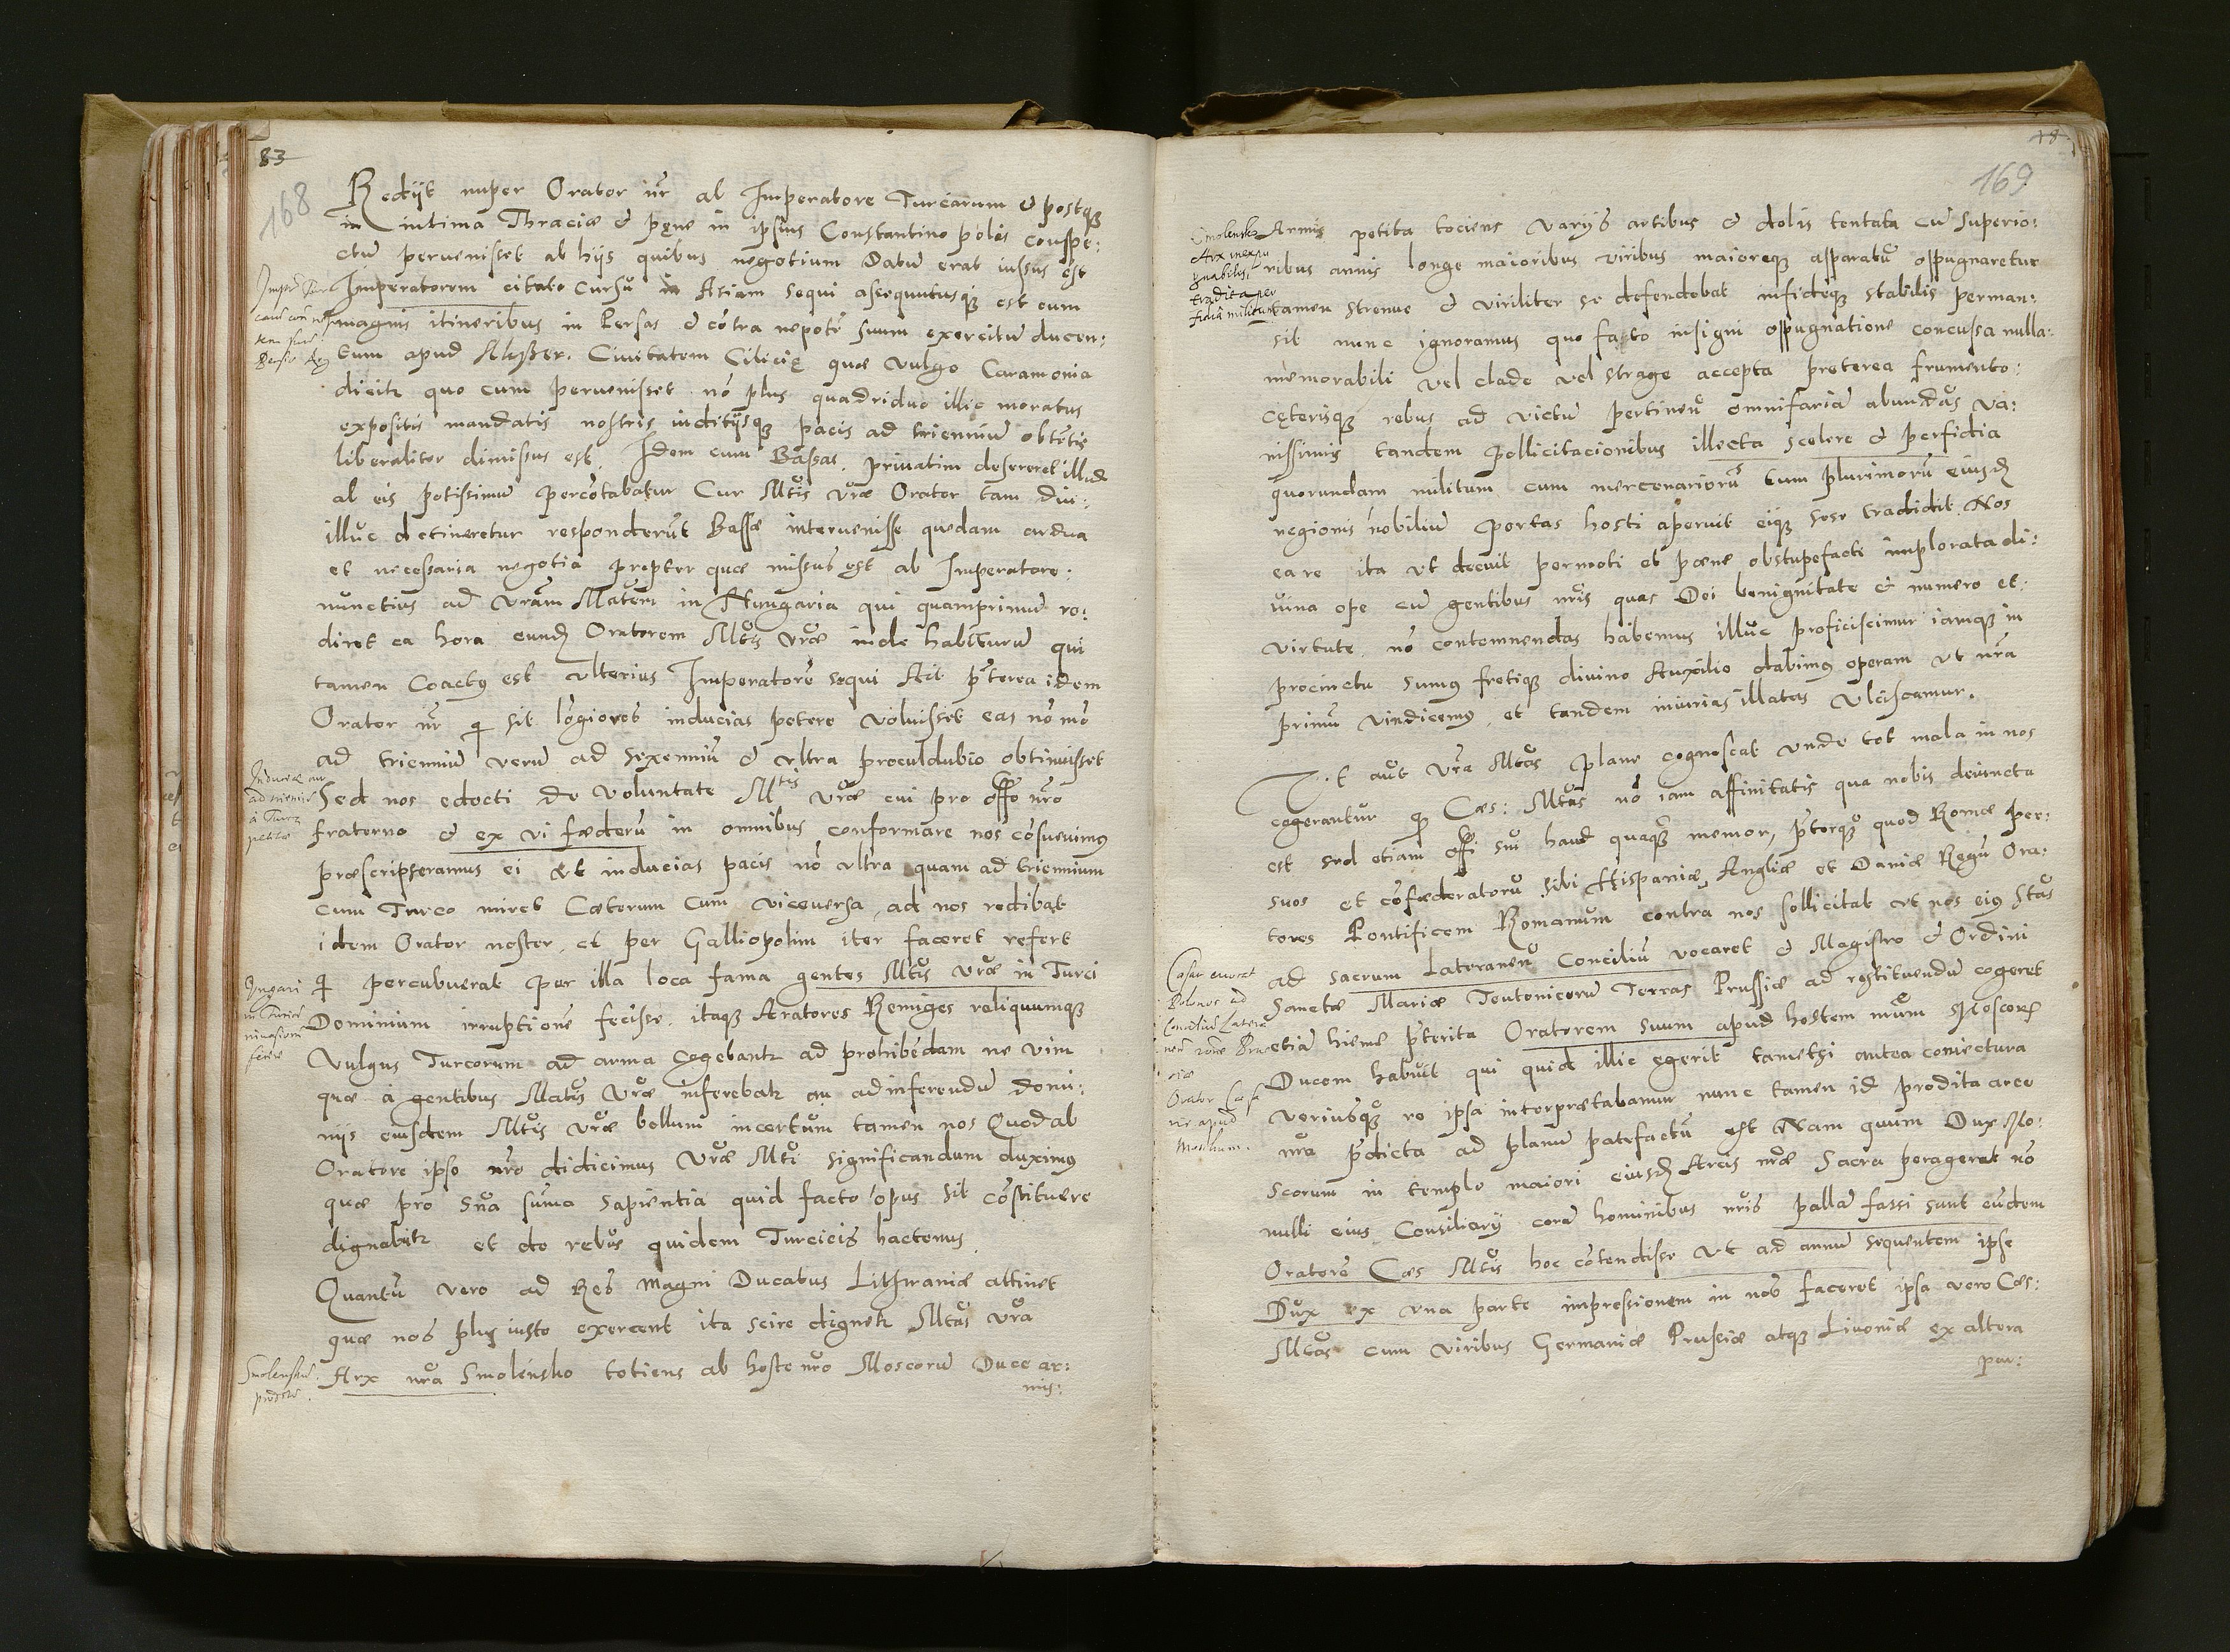 83
168
Redijt nuper Orator nr̄ ab Imperatore Turcarum & postq̄
in intima Thraciæ & pęne in ipsius Constantino polis conspe:
ctum peruenisset ab hijs quibus negotium Datū erat iussus est
Imperatorem citato Cursū in Asiam sequi assequutusq̢ est eum
magnis itineribus in Persas & cōtra nepotē suum exercitū ducen:
tum apud Civitatem Cilicię quæ vulgo Caramonia
dicitr quo cum peruenisset nō plus quadriduo illic moratus
expositis mandatis nostris inditijsq̢ pacis ad triennium obtētis
liberaliter dimissus est. Idem cum Bassas privatim
ab eis potissimū percōtabatur Cur Mtis vræ Orator tam diu:
illuc detineretur responderūt Bassæ interuenisse quædam ardua
et necessaria negotia propter quæ missus est ab Imperatore:
nunctius ad vrām Matem in Hungaria qui quamprimū re:
diret ea hora eund Oratorem Mtis vræ inde habiturū qui
tamen Coactꝯ est vlterius Imperatorē sequi Ait p̄terea idem
Orator nr̄ q̄ sit lōgiores inducias petere voluisset eas nō mō
ad triennium verū ad sexenniū & vltra proculdubio obtinuisset
Sed nos edocti de voluntate Mtis vræ cui pro offō nrō
fraterno & ex vi fæderū in omnibus conformare nos cōsueuimꝯ
præscripseramus ei vt inducias pacis nō vltra quam ad triennium
cum Turco iniret Cæterum Cum viceuersa ad nos redibat
idem Orator noster et per Galliopolim iter faceret refert
q̄ percubuerat per illa loca fama gentes Mtis vræ in Turci
Dominium irruptionē fecisse itaq̢ Aratores Remiges reliquumq̢
Vulgus Turcorum ad arma cogebantr ad prohibēdam ne vim
quæ à gentibus Matis Vræ inferebatr an ad inferendū domi:
nijs eiusdem Mtis vræ bellum incertum tamen nos Quod ab
Oratore ipso nrō didicimus Vræ Mti significandum duximꝯ
quæ pro sua sūma sapientia quid facto opus sit cōstituere
dignabitr et de rebus quidem Turcicis hactenus
Quantū vero ad Res Magni Ducatus Lithuaniæ attinet
quæ nos plus iusto exercent ita scire dignetr Mtas vrā
Smolenskū proditū.
Arx nrā Smolensko totiens ab hoste nrō Moscorū Duce ar:
mis:
Induciæ ad trienniū à Turca petitæ
Ungari in Turciā inuasionem fecere
169
Smolensko Arx inexpugnabilis tradita perfidia militum
Armis petita tociens varijs artibus & dolis tentata cū superio:
ribus annis longe maioribus viribus maioreq̢ apparatū oppugnaretur
tamen strenue & viriliter se defendebat infideq̢ stabilis perman:
sit nunc ignoramus quo facto insigni oppugnatione concussa nulla:
memorabili vel clade vel strage accepta preterea frumento:
cęterisq̢ rebus ad victū pertinen omnifariā abundās va:
nissimis tandem pollicitacionibus illecta scelere & perfidia
quorundam militum cum mercenariorū tum plurimorū eiusd
regionis nobilium portas hosti aperuit eiq̢ sese tradidit Nos
ea re ita vt decuit permoti et pæne obstupefacti implorata di:
uina ope cū gentibus nris quas Dei benignitate & numero et
virtute nō contemnendas habemus illuc proficiscimur iamq̢ in
procinctu sumꝯ fretiq̢ divino Auxilio dabimꝯ operam vt nrā
primū vindicemꝯ et tandem iniurias illatas vlciscamur.
Vt aut vrā Mtas plane cognoscat vnde tot mala in nos
cogerantur q Cæs: Mtas nō iam affinitatis qua nobis deuincta
est sed etiam offi sui haud quaq̄ memor, p̄terq̢ quod Romæ per:
suos et cōfæderatorū sibi Hispaniæ Angliæ et Daniæ Regū Ora:
tores Pontificem Romanum contra nos sollicitat vt nos eiꝯ Stas
ad Sacrum Lateranen Conciliū vocaret & Magistro & Ordini
Sanctæ Mariæ Teutonicorū Terras Prussiæ ad restituendū cogeret
etiā hieme p̄terita Oratorem suum apud hostem nrum Moscor
Ducem habuit qui quid illic egerit tametsi antea coniectura
veriusq̢ re ipsa interprætabamur nunc tamen id prodita arce
nrā p̄dicta ad planū patefactū est Nam quum Dux Mo:
scorum in templo maiori eiusd Arcis nræ Sacra perageret nō
nulli eius Consiliarij corā hominibus nris pallā fassi sunt eudem
Oratorē Cæs Mtis hoc cōtendisse vt ad annū sequentem ipse
Dux ex vna parte impressionem in nos faceret ipsa vero Cæs:
Mtas cum viribus Germaniæ Prussiæ atq̢ Liuoniæ ex altera
par:
Cæsar euocat Polonos ad Concilium Lateranen
Orator Cæsaris apud Moschum.